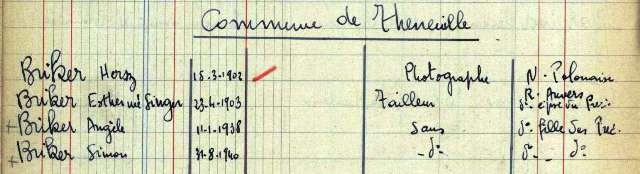 Commune de Theneuille
Briker Hersz 15.3-1902 Photographe N. Polonaise
Briker Esther née Singer 23.4-1903 Tailleur R. Anvers
dº épse du Préc.
Briker Angèle 11-1-1938 Sans dº fille des Préc.
Briker Simon 31-8-1940 - dº - dº - dº